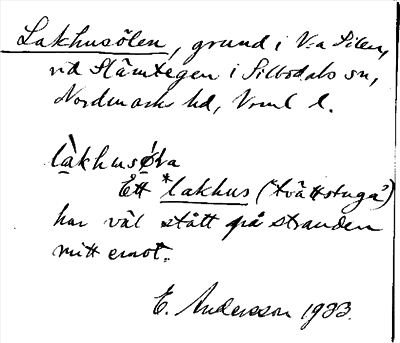 Lakhusölen, grund i V:a Silen,
vid Slämtegen i Silbodals sn,
Nordmark hd, Vrml l.
làkhusø̀la
Ett *lakhus ("tvättstuga")
har väl stått på stranden
mitt emot.
E. Andersson 1933.